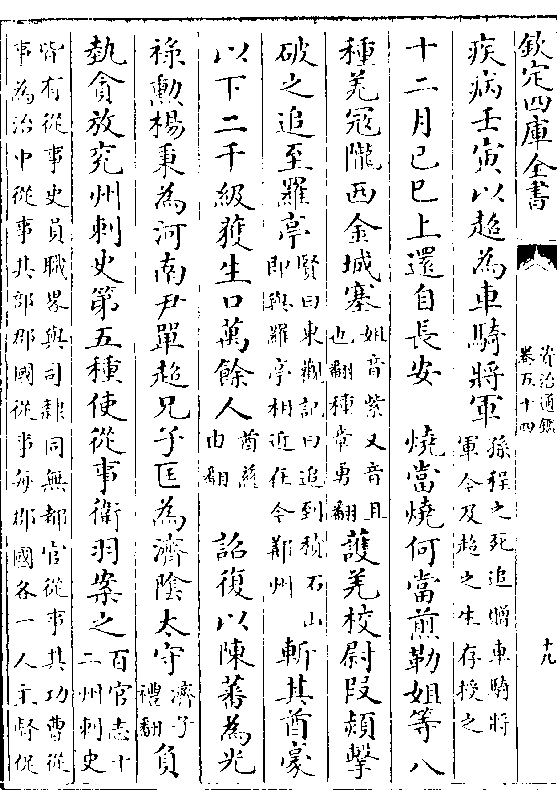 欽定四庫全書
資治通鑑
卷五十四
十九
疾病壬寅以超為車騎將軍
孫程之死追贈車騎將
軍今及超之生存授之
十二月己巳上還自長安 燒當燒何當煎勒姐等八
種羌冦隴西金城塞
姐音紫又音且
也翻種章勇翻
護羌校尉段熲擊
破之追至羅亭
賢曰東觀記曰追到積石山
即與羅亭相近在今鄯州
斬其酋豪
以下二千級獲生口萬餘人
酋慈
由翻
詔復以陳蕃為光
祿勲楊秉為河南尹單超兄子匡為濟隂太守
濟子
禮翻
負
埶貪放兖州刺史第五種使從事衛羽案之
百官志十
二州刺史
皆有從事史員職畧與司隸同無都官從事其功曹從
事為治中從事其部郡國從事每郡國各一人主督促